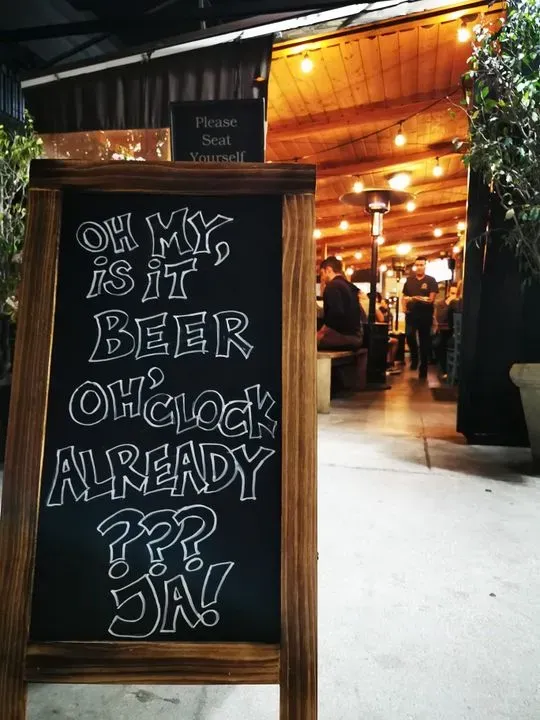 Please
Seat
Yourself
OH MY,
iS iT
BEER
OH'CLOCK
ALREADY
???
JA!